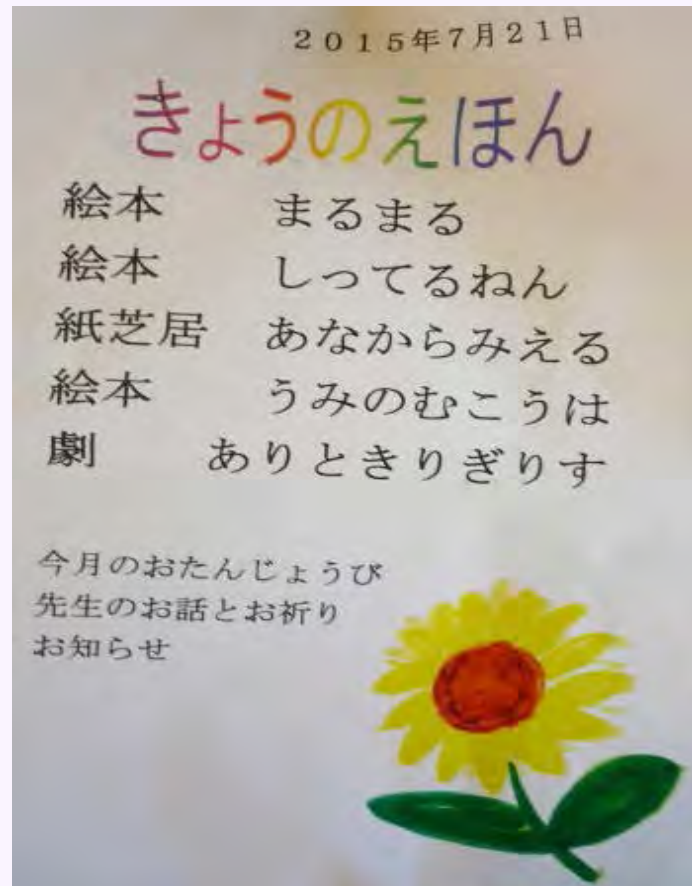 ２０１５年７月２１日
きょうのえほん
絵本　まるまる
絵本　しってるねん
紙芝居　あなからみえる
絵本　うみのむこうは
劇　ありときりぎりす
今月のおたんじょうび
先生のお話とお祈り
お知らせ